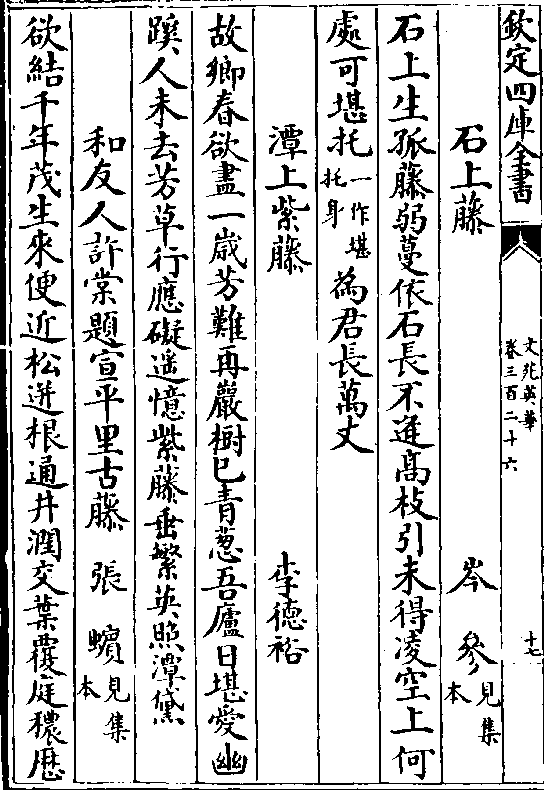 欽定四庫全書
文苑英華
卷三百二十六
十七
石上藤 岑參見集本
石上生孤藤弱蔓依石長不逢髙枝引未得凌空上何
處可堪托一作堪托身為君長萬丈
潭上紫藤 李德裕
故鄉春欲盡一歲芳難再巖樹已青葱吾廬日堪愛幽
蹊人未去芳草行應礙遥憶紫藤垂繁英照潭黛
和友人許棠題宣平里古藤 張蠙見集本
欲結千年茂生來便近松迸根通井潤交葉覆庭穠歴